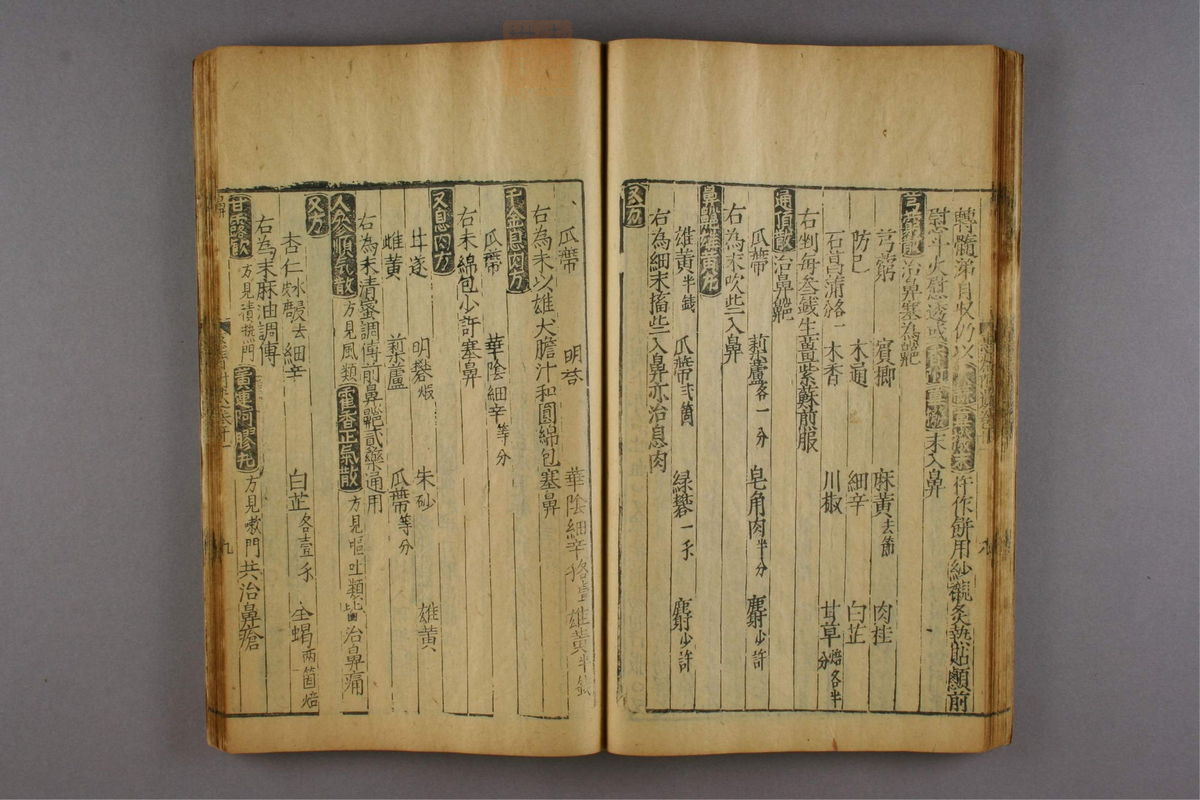 轉髓第月收仍以
熨斗火熨透或末入鼻
芎藭散治鼻塞為齆
芎藭 賓榔 麻黃去節 肉桂
防巳 木通 細辛 白芷
石昌蒲各一分 木香 川椒 甘草焙各半分
右剉每叁錢生薑紫蘇前服
通頂散治鼻齆
瓜蔕 藜蘆各一分 皂角肉半分 麝少許
右為末吹些入鼻
鼻齆雄黃丸
雄黃半錢 瓜蔕弍箇 綠礬一錢 麝少許
右為細末搐些入鼻亦治息肉
又方
瓜蔕 明礬 華陰細辛各壹 雄黃半錢
右為末以雄犬膽汁和圓綿包塞鼻
千金息肉方
瓜蔕 華陰細辛等分
右末綿包少許塞鼻
又息肉方
甘遂 明礬煅 朱砂 雄黃
雌黃 藜蘆 瓜蔕等分
右為末清蜜調傅前鼻齆貳藥通用
人參順氣散方見風類 藿香正氣散方見嘔吐類皆治鼻痛
又方
杏仁水浸去 細辛 白芷各壹錢 全蝎兩箇焙
右為末麻油調傅
甘露飲方見積熱門 黃連阿膠丸方見嗽門共治鼻瘡
九